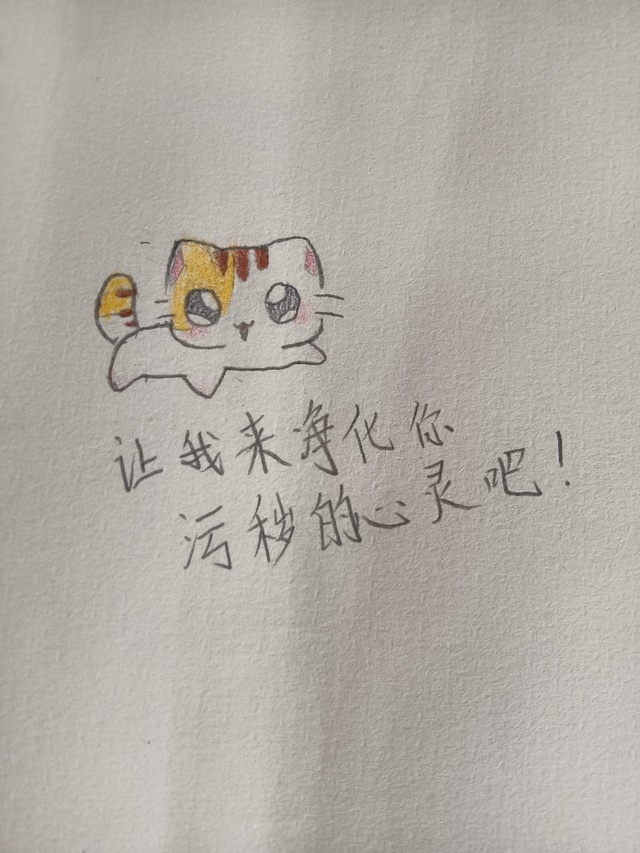 让我来净化你
污秽的心灵吧！